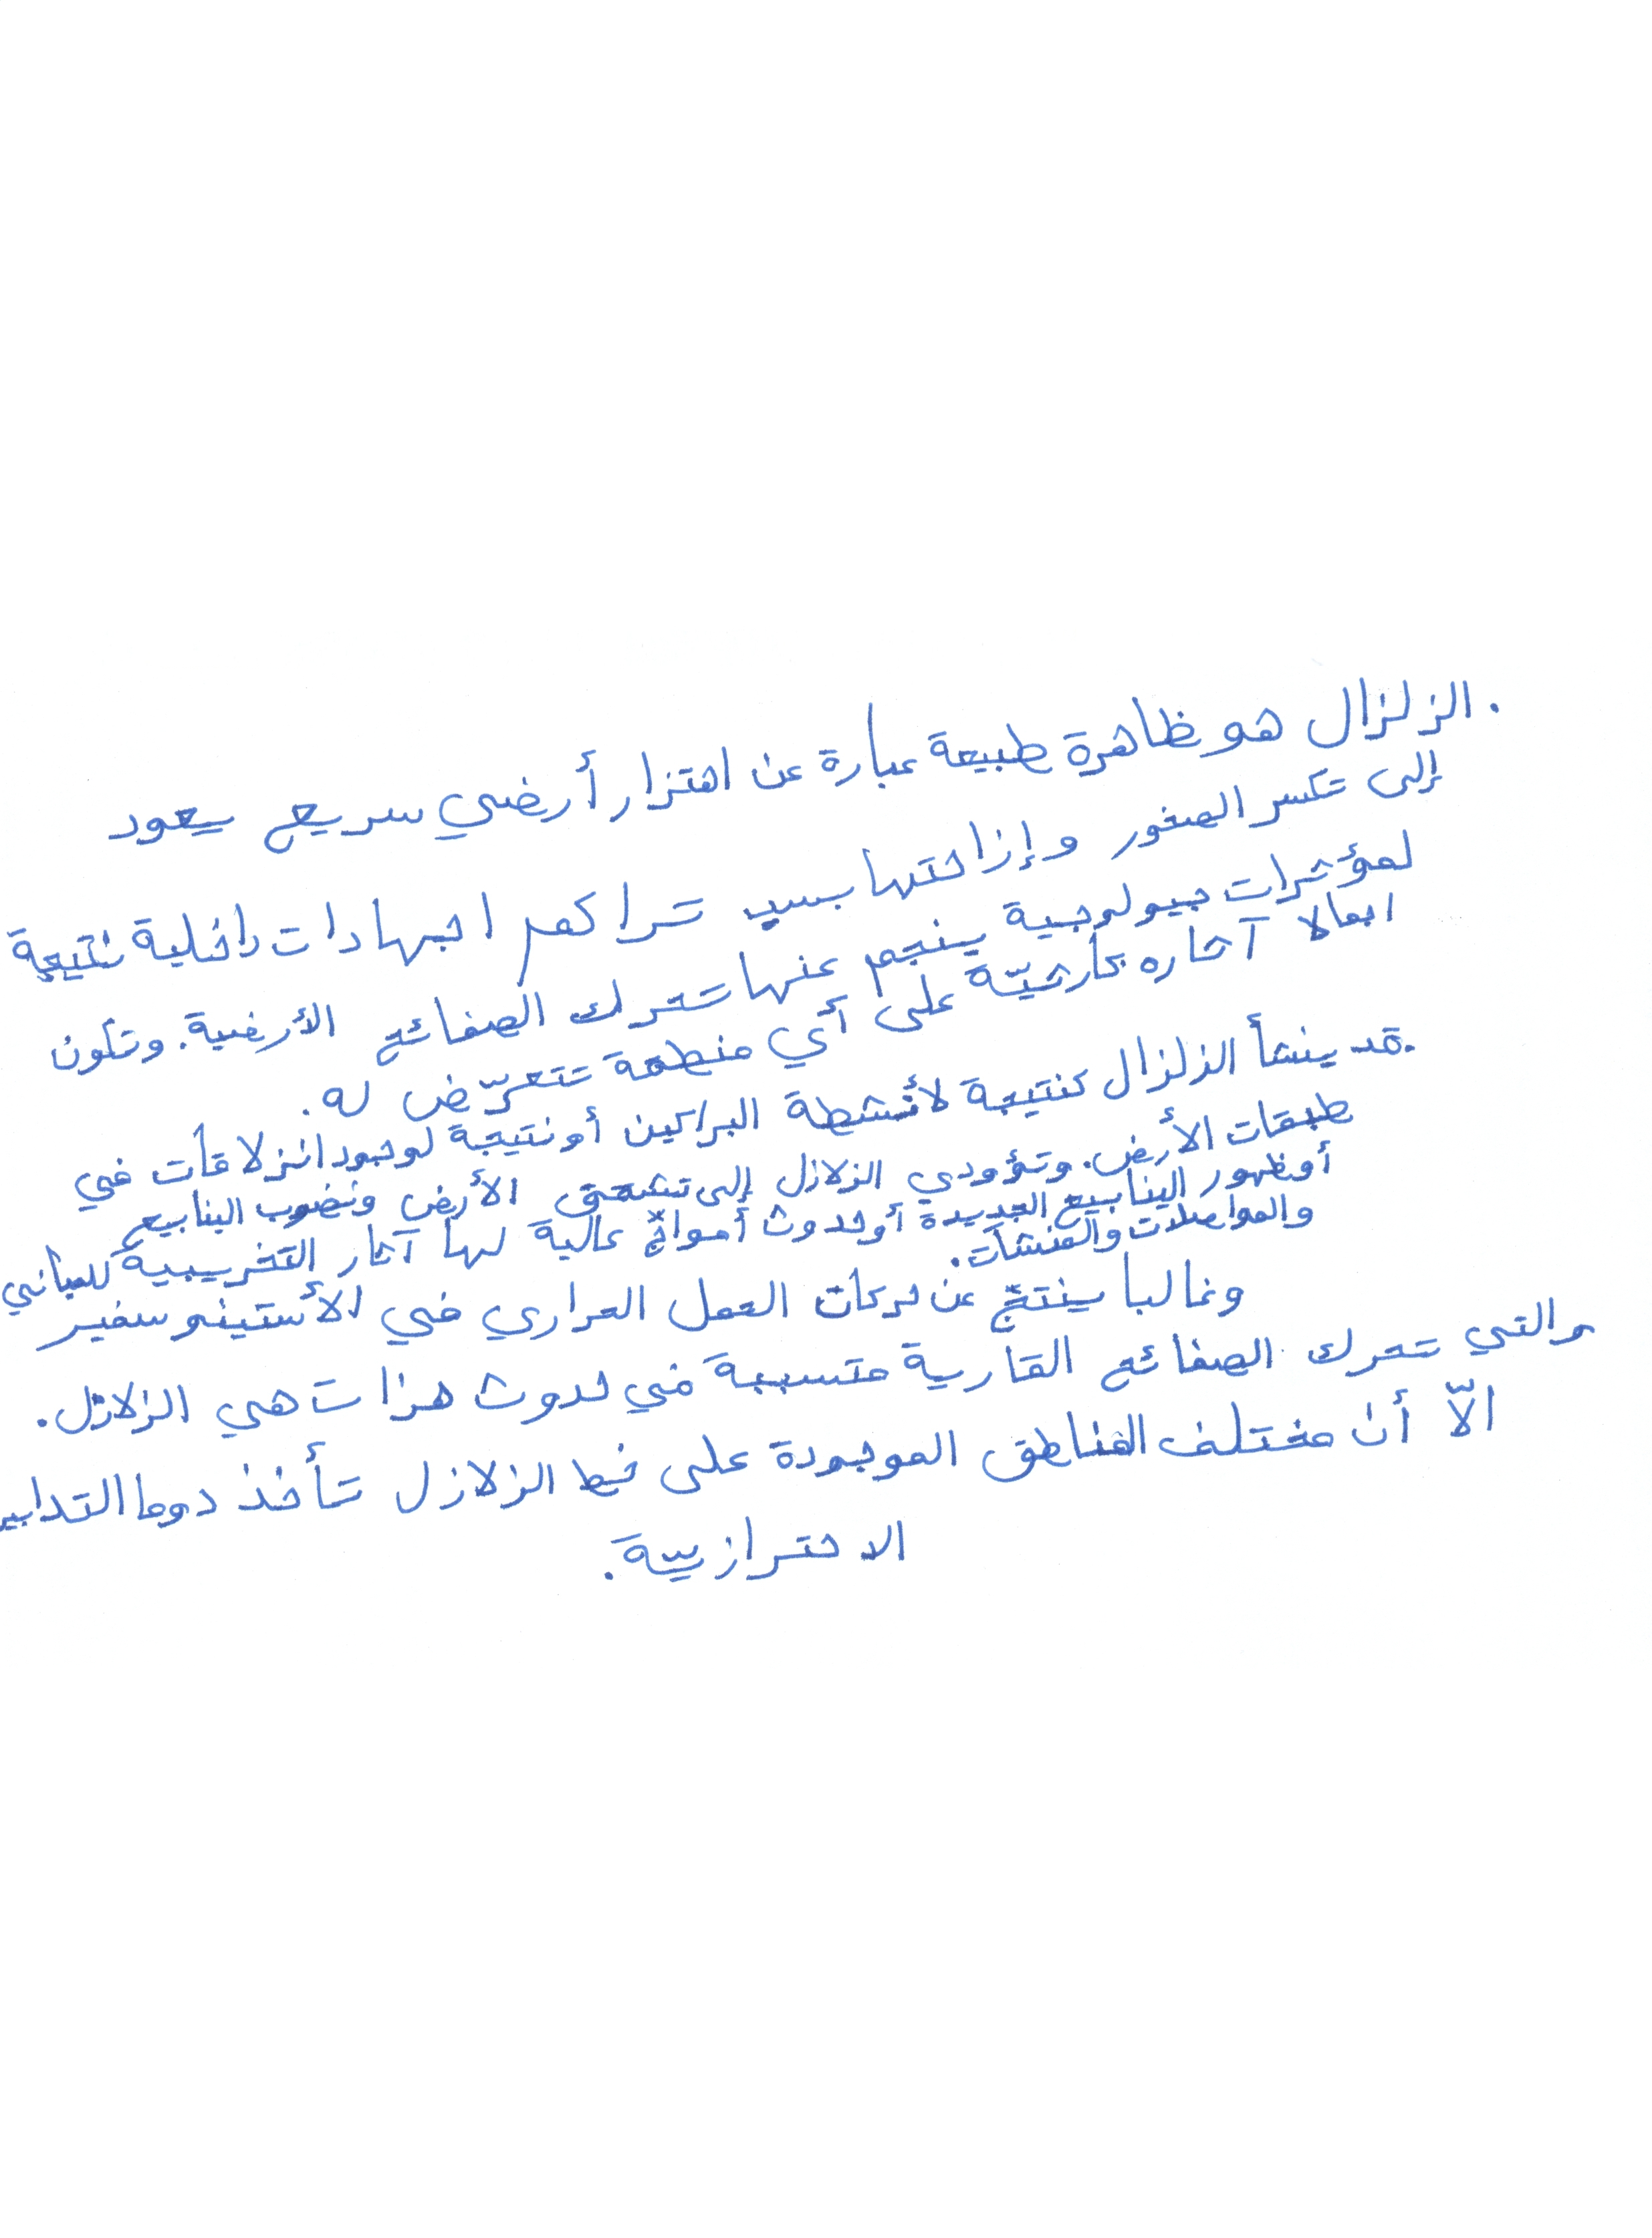 . الزلزال هو ظاهرة طبيعة عبارة عن اهتزاز أرضي سريع يعود
إلى تكسر الصخور وإزاحتها بسبب تراكم اجهادات داخلية نتيجة
لمؤثرات جيولوجية ينجم عنها تحرك الصفائح الأرضية. وتكون
اجمالا آثاره كارثيّة على أي منطقة تتعرّض له.
.قد ينشأ الزلزال كنتيجة لأنشطة البراكين أو نتيجة لوجود انزلاقات في
طبقات الأرض. وتؤودي الزلازل إلى تشقق الأرض ونضوب الينابيع
أوظهور الينابيع الجديدة أوحدوث أمواجّ عالية لها آثار التخريبية للمباني
والمواصلات والمنشآت.
وغالبا ينتجّ عن حركات الحمل الحراري في الأستينوسفير
والتي تحرك الصفائح القارية متسببة في حدوث هزات هي الزلازل.
الّا أن مختلف المناطق الموجودة على خط الزلازل تأخذ دوما التدابير
الاحترازييّة.